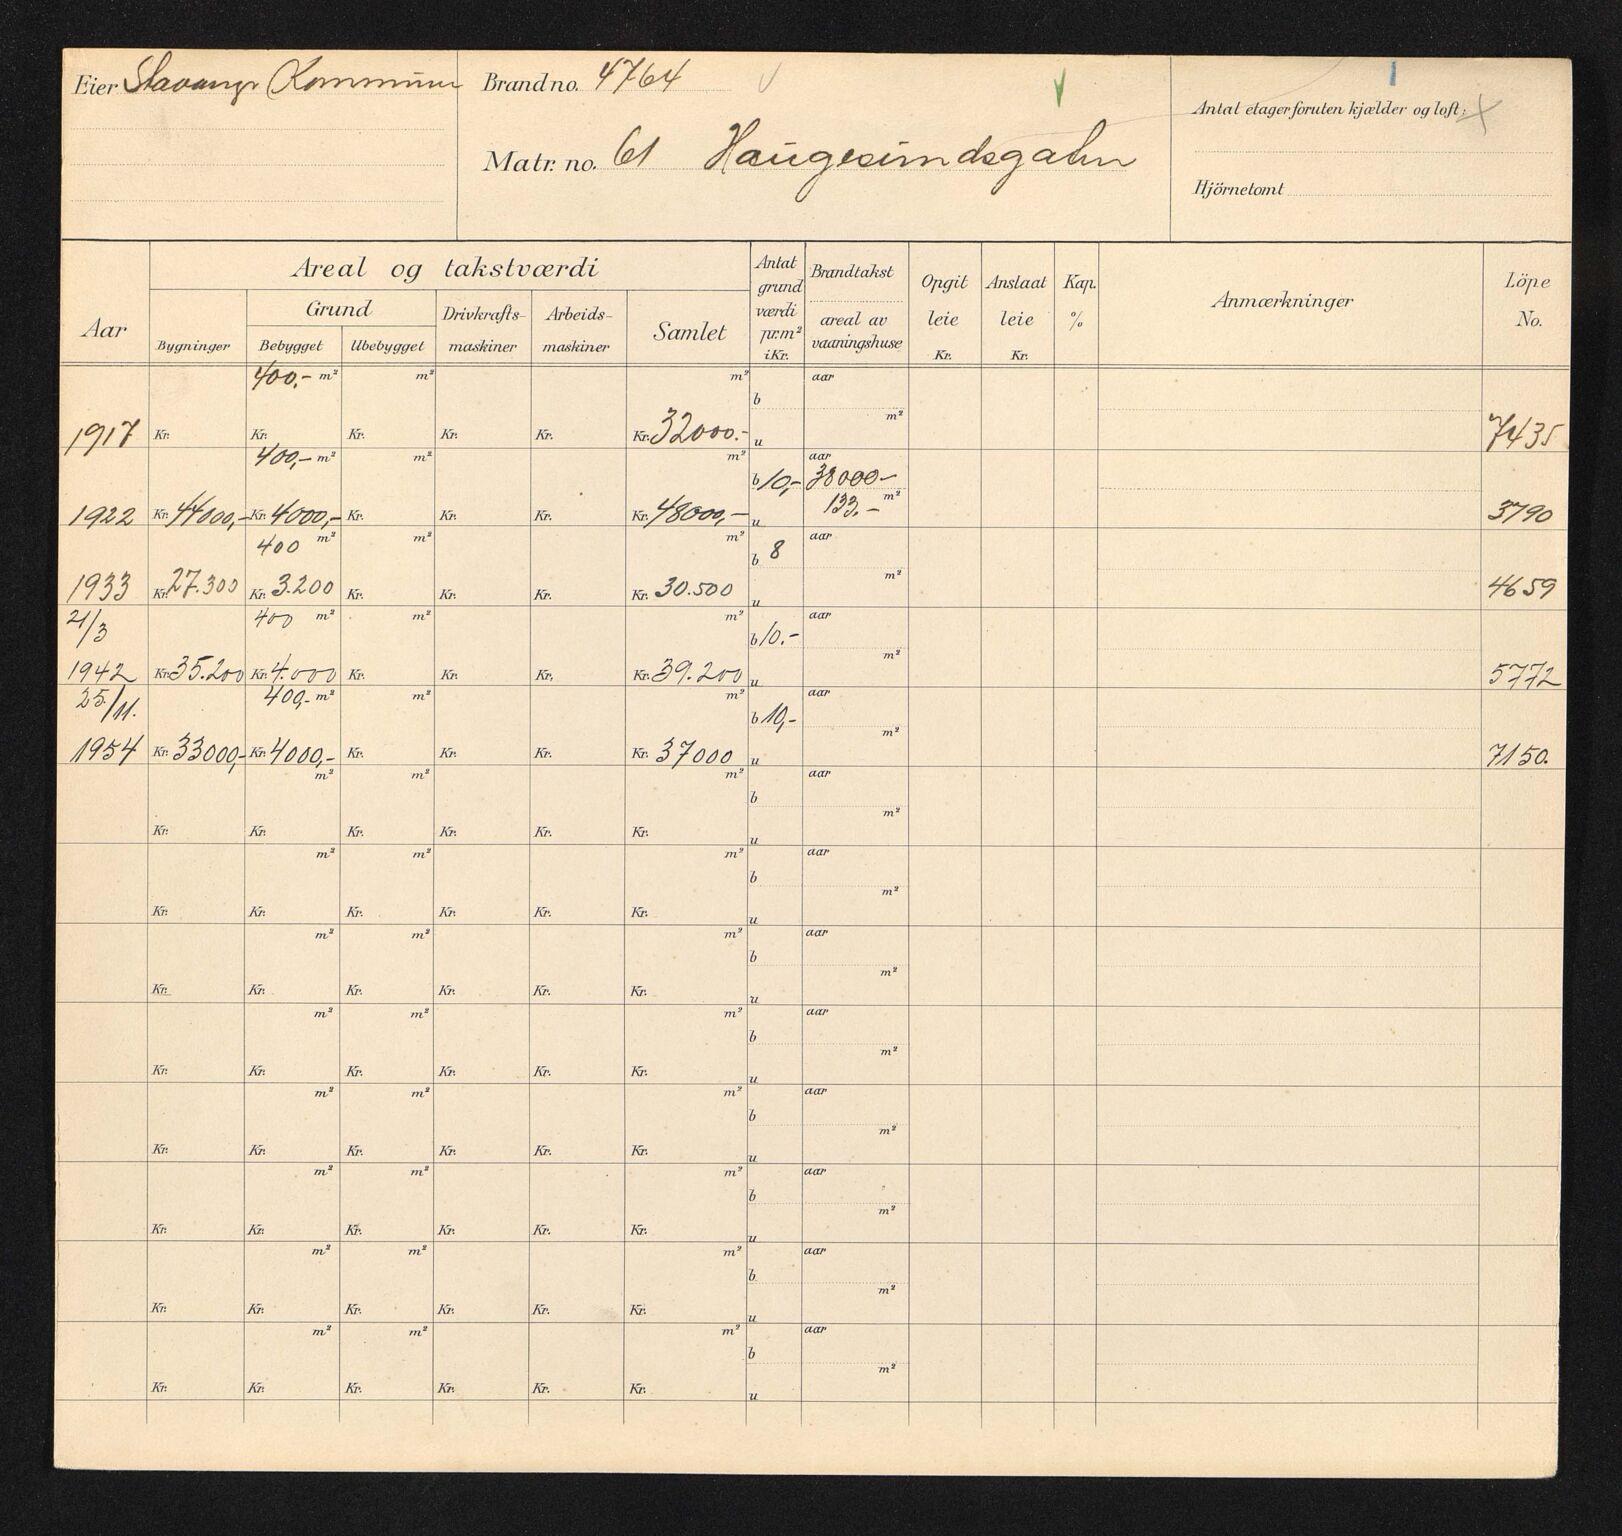 Eier Stavanger Kommune
Brandno. 4764
Matr. no. 61 Haugesundsgaten
Antal etager foruten kjælder og loft:
Hjörnetomt
Aar
Areal og takstværdi
Bygninger
Grund
Bebygget
Ubebygget
Drivkrafts-
maskiner
Arbeids-
maskiner
Samlet
Antat
grund
værdi
pr.m²
i Kr.
Brandtakst
areal av
vaaningshuse
Opgit
leie
Kr.
Anslaat
leie
Kr.
Kap.
%
Anmærkninger
Löpe
No.
400,- m² m² m² b aar
1917 Kr. Kr. Kr. Kr. Kr. Kr. 32000.- u m² 7435
400,- m² m² m² b 10,- aar 38000-
1922 Kr. 44000,- Kr. 4000,- Kr. Kr. Kr. Kr. 48000,- u 133.- m² 3790
400 m² m² m² b 8 aar
1933 Kr. 27.300 Kr. 3.200 Kr. Kr. Kr. Kr. 30.500 u m² 4659
21/3 400 m² m² m² b 10.- aar
1942 Kr. 35.200 Kr. 4.000 Kr. Kr. Kr. Kr. 39.200 u m² 5772
25/11. 400,- m² m² m² b 10,- aar
1954 Kr. 33000,- Kr. 4000,- Kr. Kr. Kr. Kr. 37000 u m² 7150.
m² m² m² b aar
Kr. Kr. Kr. Kr. Kr. Kr. u m²
m² m² m² b aar
Kr. Kr. Kr. Kr. Kr. Kr. u m²
m² m² m² b aar
Kr. Kr. Kr. Kr. Kr. Kr. u m²
m² m² m² b aar
Kr. Kr. Kr. Kr. Kr. Kr. u m²
m² m² m² b aar
Kr. Kr. Kr. Kr. Kr. Kr. u m²
m² m² m² b aar
Kr. Kr. Kr. Kr. Kr. Kr. u m²
m² m² m² b aar
Kr. Kr. Kr. Kr. Kr. Kr. u m²
m² m² m² b aar
Kr. Kr. Kr. Kr. Kr. Kr. u m²